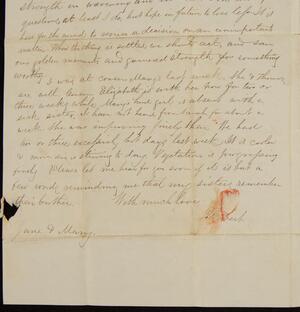 strength in wavering and in
questions, at least I do, but hope in future to less. It is
bad for the mind to a decision on an unimportant
matter. When this thing is settled, we should act, and save
our golden moments and garnered strength for something
worthy.
I was at Cousin Mary's last week. She & Thomas
are well. Cousin Elizabeth is with her now for two or
three weeks while Mary's hired girl is absent with a
sick sister. I have not heard from Sarah for about a
week. She was improving finely then. We had
two or three excessively hot days last week. It is cooler
& more air is stirring to day. Vegetation is progressing
finely. Please let me hear from you soon if it is but a
few words reminding me that my sisters remember
their brother. With much love
Jane & Mary.